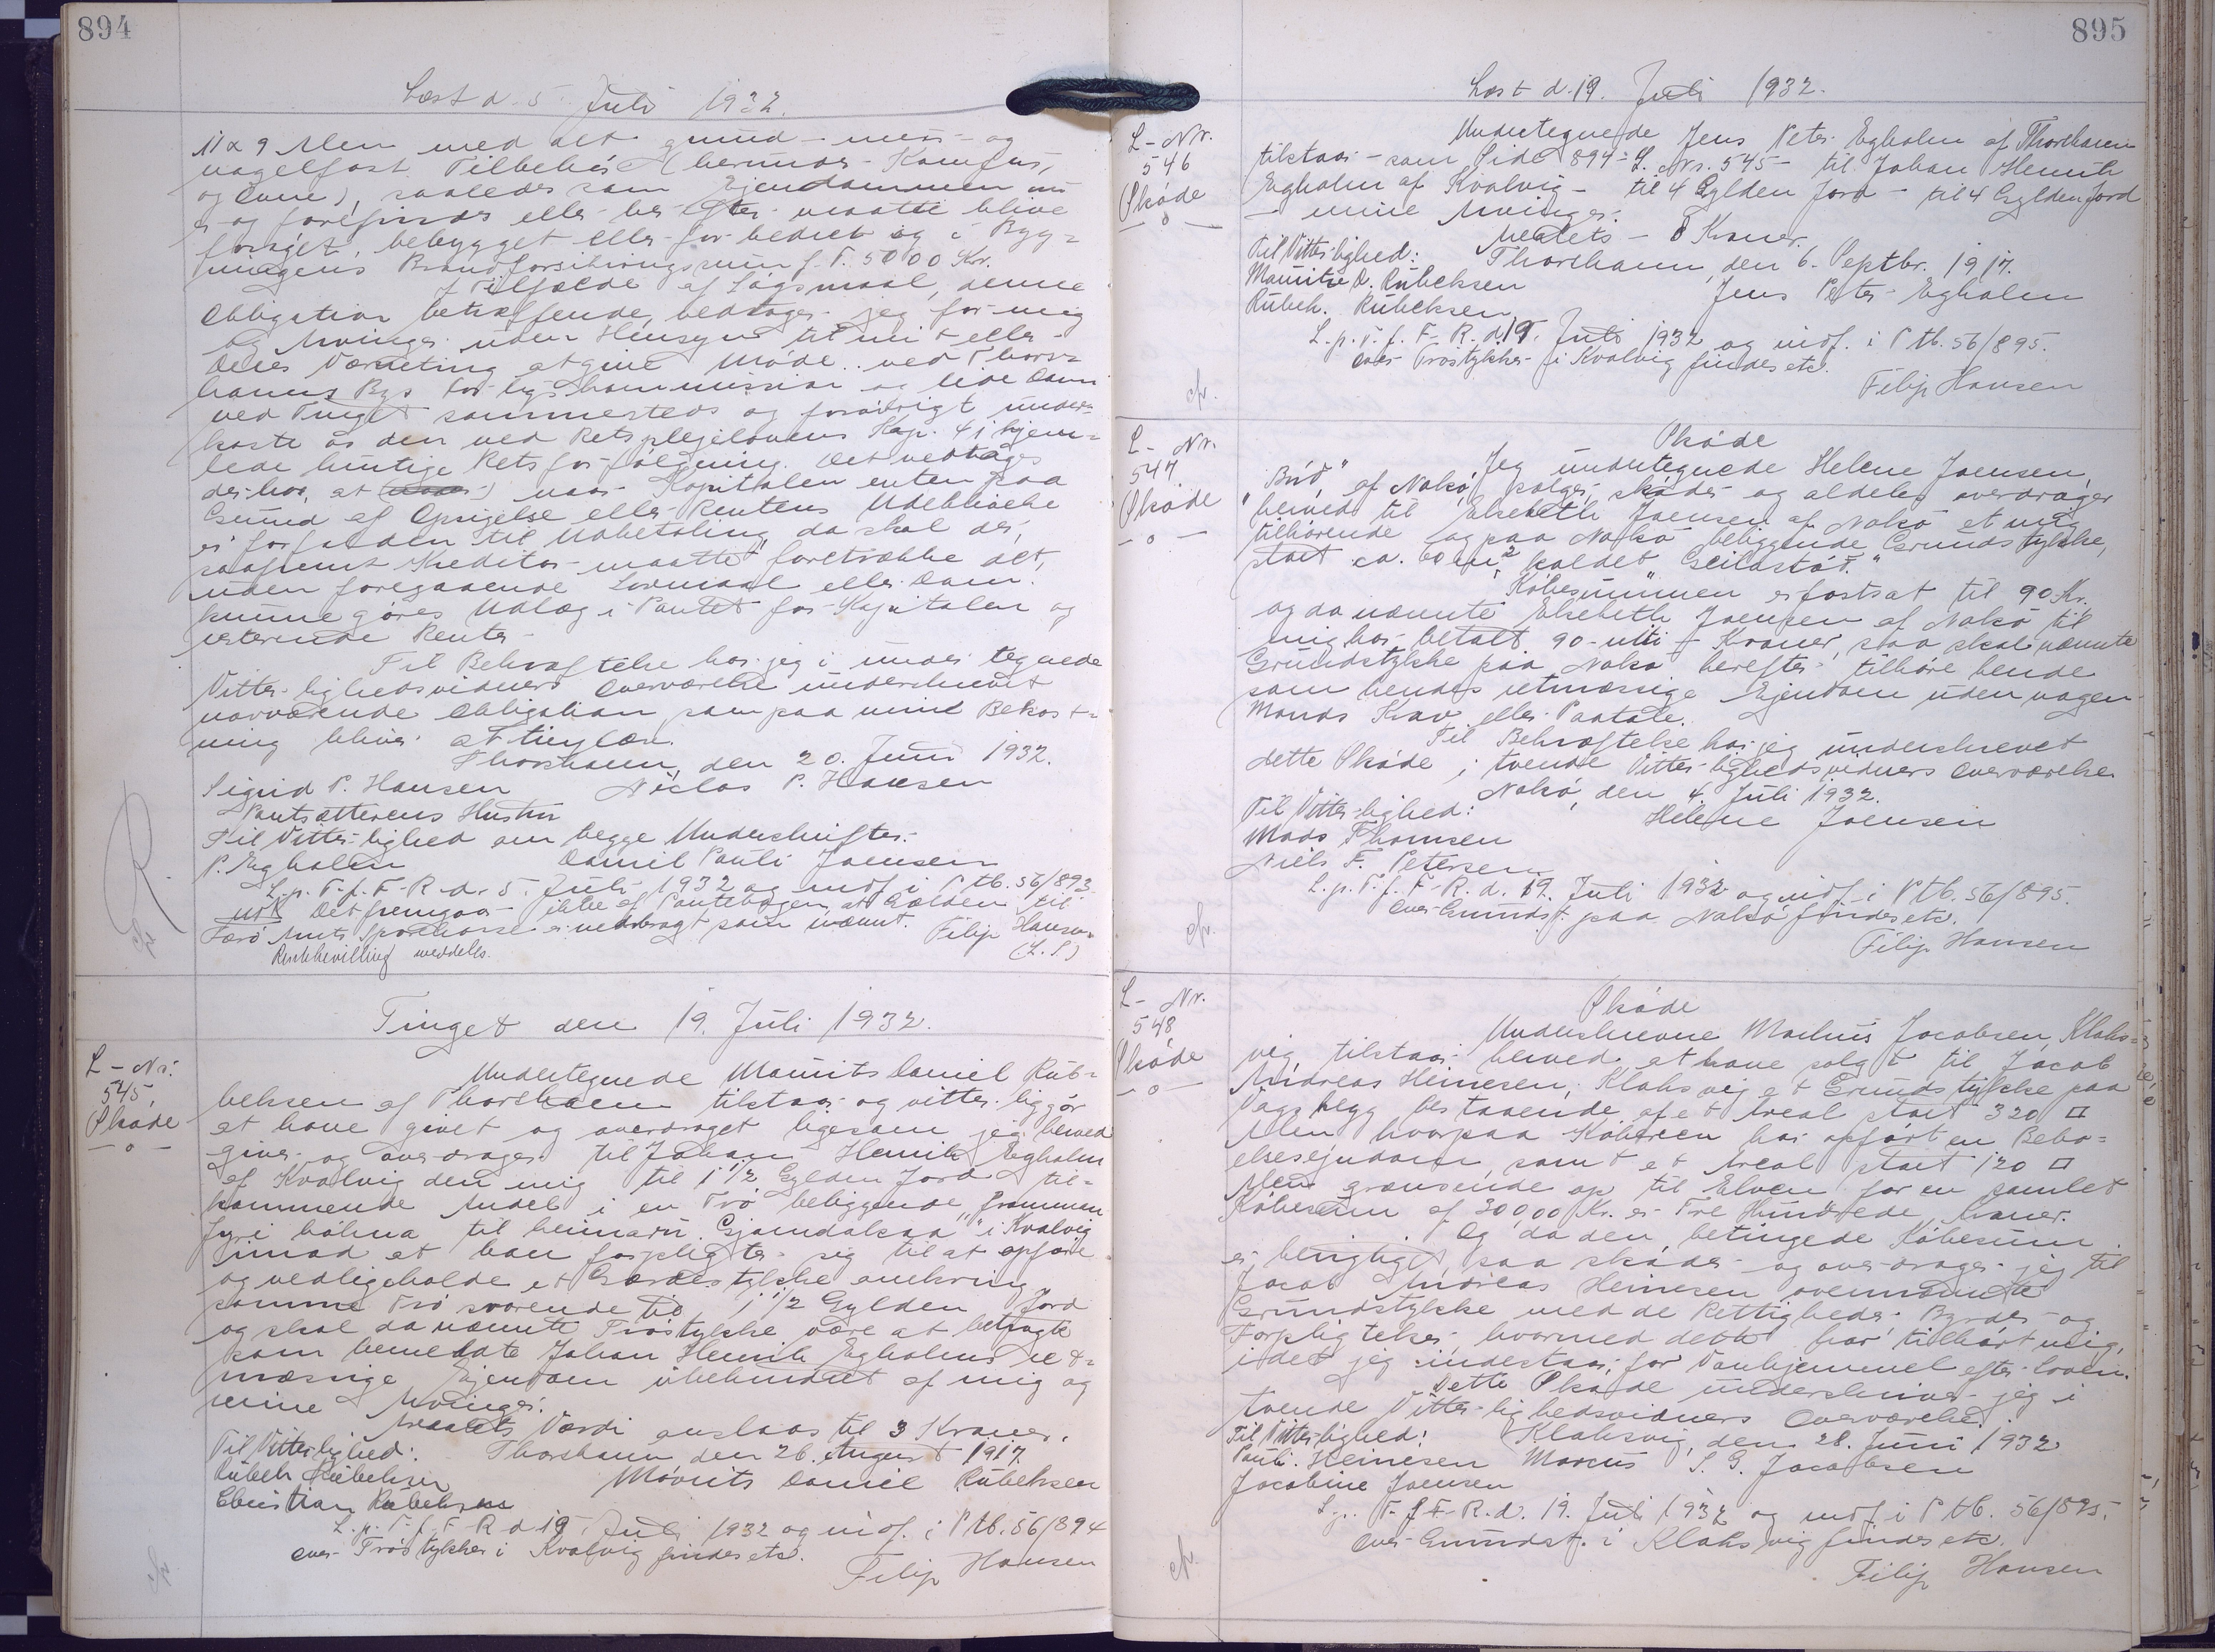 894
Læst d. 5. Juli 1932.
11 x 9 Alen med alt grund- mur- og
nagelfast Tilbehør (herunder Komfur,
og Ovne), saaledes som Ejendommen nu
er og forefindes eller her efter maatte blive
forøget, bebygget eller forbedret og i Byg=
ningens Brandforsikringssum p. T. 5000 Kr.
I Tilfælde af Søgsmaal, denne
Obligation betræffende, vedtager jeg for mig
og Arvinger uden Hensyn til mit eller
deres Værneting at give Møde ved Thors=
havns Bys Forligskommission og lide Dom
ved Tinget sammesteds og forøvrigt under=
kaste os den ved Retsplejelovens Kap. 41 hjem=
lede hurtige Retsforfølgning. Det vedtages
derhos, at naar Kapitalen enten paa
Grund af Opsigelse eller Rentens Udeblivelse
er forfalden til Udbetaling, da skal der,
saafremt Kreditor maatte foretrække det,
uden foregaaende Lovmaal eller Dom
kunne gøres Udlæg i Pantet for Kapitalen og
resterende Renter.
Til Bekræftelse har jeg i under tegnede
Vitterlighedsvidners Overværelse underskrevet
nærværende Obligation som paa min Bekost=
ning bliver at tinglæse.
Thorshavn, den 20. Juni 1932.
Sigrid P. Hansen Niclas P. Hansen
Pantsætterens Hustru
Til Vitterlighed om begge Underskrifter:
P. Egholm Daniel Pauli Joensen
L. p. T. f. F. R. d. 5. Juli 1932 og indf. i S. tb. 56/893
Det fremgaar ikke af Pantebogen, at Gælden til
Færø Amts Sparekasse er nedbragt som nævnt. Filip Hansen
Rentebevilling meddelt. (L. S.)
Tinget den 19. Juli 1932.
L-Nr.
545,
Skøde
—o—
Undertegnede Mourits Daniel Rub=
beksen af Thorshavn tilstaar og vitterliggør
at have givet og overdraget ligesom jeg herved
giver og overdrager til Johan Henrik Egholm
af Kvalvig den mig til 1 1/2 Gylden Jord til=
kommende Andel i en Trø beliggende "frammun
fyri hólma til heimaru Gjomdalsaa" i Kvalvig
imod at han forpligter sig til at opføre
og vedligeholde et Gærdestykke omkring
samme Trø svarende til 1 1/2 Gylden Jord
og skal da nævnte Trøstykke være at betragte
som bemeldte Johan Henrik Egholms ret=
mæssige Ejendom ubehindret af mig og
mine Arvinger.
Arealets Værdi anslaas til 3 Kroner.
Til Vitterlighed: Thorshavn den 26. August 1917.
Rubek Rubeksen Mourits Daniel Rubeksen
Christian Rubeksen
L. p. T. f. F. R. d. 19. Juli 1932 og indf. i S. tb. 56/894
over Trøstykker i Kvalvig findes etc.
Filip Hansen
895
Læst d. 19. Juli 1932.
L-Nr.
546
Skøde
—o—
Undertegnede Jens Peter Egholm af Thorshavn
tilstaar - som Side 894 = L. Nr. 545 - til Johan Henrik
Egholm af Kvalvig - til 4 Gylden Jord - til 4 Gylden Jord
- mine Arvinger.
Arealets - 8 Kroner.
Til Vitterlighed: Thorshavn, den 6. Septbr. 1917.
Mouritz D. Rubeksen Jens Peter Egholm
Rubek. Rubeksen
L. p. T. f. F. R. d. 19. Juli 1932 og indf. i S. tb. 56/895.
over Trøstykker i Kvalvig findes etc.
Filip Hansen
L-Nr.
547
Skøde
—o—
Skøde
Jeg undertegnede Helene Joensen,
"Búð" af Nolsø, sælger, skøder og aldeles overdrager
herved til Elsebeth Joensen af Nolsø et mig
tilhørende og paa Nolsø beliggende Grundstykke,
stort ca. 60 m2, kaldet "Geilastøð."
Købesummen er fastsat til 90 Kr.
og da nævnte Elsebeth Joensen af Nolsø til
mig har betalt 90 - nitti - Kroner, saa skal nævnte
Grundstykke paa Nolsø herefter tilhøre hende
som hendes retmæssige Ejendom uden nogen
Mands Krav eller Paatale.
Til Bekræftelse har jeg underskrevet
dette Skøde i tvende Vitterlighedsvidners Overværelse.
Nolsø, den 4. Juli 1932.
Til Vitterlighed: Helene Joensen
Mads Thomsen
Niels F. Petersen
L. p. T. f. F. R. d. 19. Juli 1932 og indf. i S. tb. 56/895.
over Grundst. paa Nolsø findes etc.
Filip Hansen
L-Nr.
548
Skøde
—o—
Skøde
Underskrevne Markus Jacobsen, Klaks=
vig, tilstaar herved at have solgt til Jacob
Andreas Heinesen, Klaksvig et Grundstykke paa
Vágs hegg bestaaende af et Areal stort 320 □
Alen hvorpaa Køberen har opført en Bebo=
elsesejendom, samt et Areal stort 120 □
Alen grænsende op til Elven for en samlet
Købesum af 300,00 Kr. er Tre Hundrede Kroner.
Og da den betingede Købesum
er berigtiget, saa skøder og overdrager jeg til
Jacob Andreas Heinesen ovennævnte
Grundstykke med de Rettigheder, Byrder og
Forpligtelser, hvormed dette har tilhørt mig,
idet jeg indestaar for Vanhjemmel efter Loven.
Dette Skøde underskriver jeg i
tvende Vitterlighedsvidners Overværelse.
Til Vitterlighed: Klaksvig, den 28. Juni 1932
Pauli Heinesen Marcus S. G. Jacobsen
Jacobine Joensen
L. p. T. f. F. R. d. 19. Juli 1932 og indf. i S. tb. 56/895.
over Grundst. i Klaksvig findes etc.
Filip Hansen